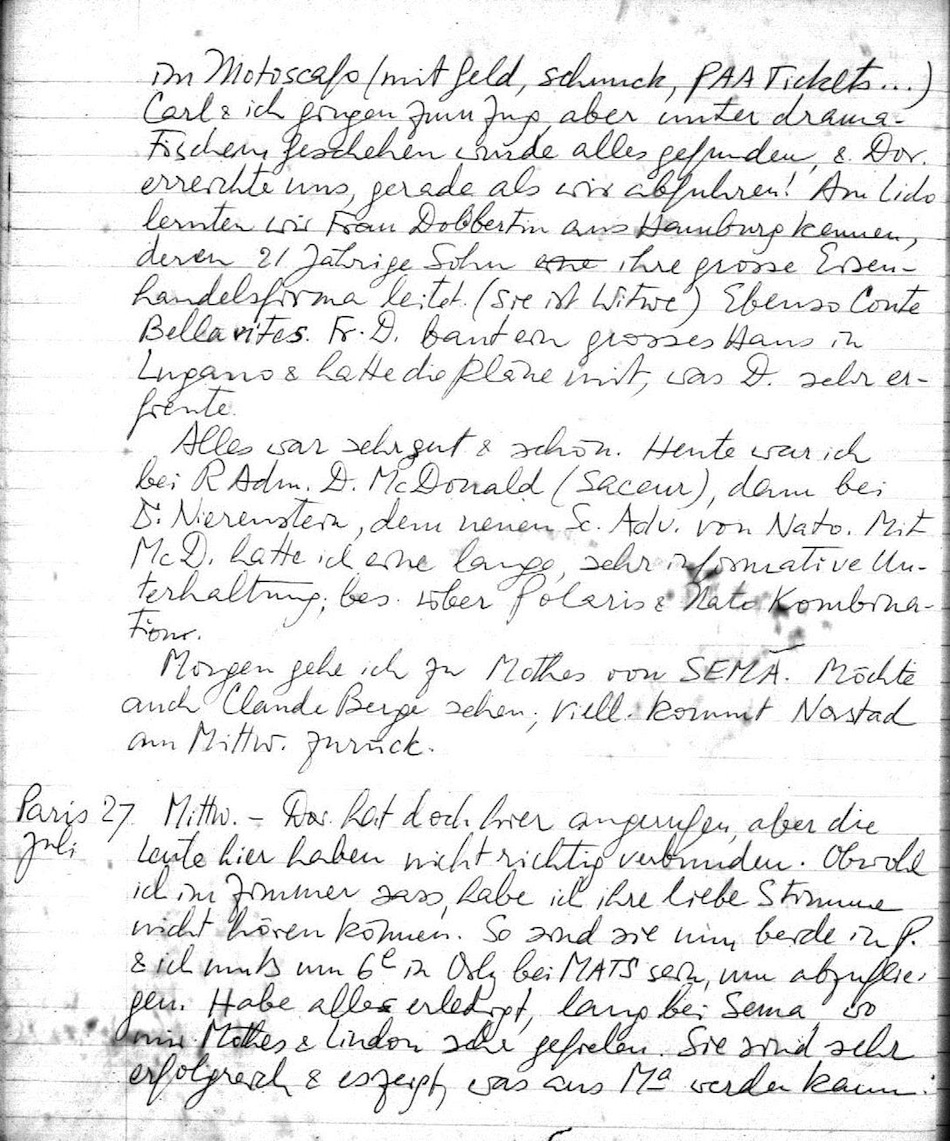 im Motoscafo (mit Geld, Schmuck, PAA Tickets...)
Carl & ich gingen zum Zug, aber unter drama-
tischem Geschehen wurde alles gefunden, & Dor.
erreichte uns, gerade als wir abfuhren! Am Lido
lernten wir Frau Dobbertin aus Hamburg kennen,
deren 21 Jährige Sohn eine ihre grosse Eisen-
handelsfirma leitet. (Sie ist Witwe) Ebenso Conte
Bellavites. Fr. D. baut ein grosses Haus in
Lugano & hatte die Pläne mit, was D. sehr er-
freute.
Alles war sehr gut & schön. Heute war ich
bei R Adm. D. McDonald (Saceur), dann bei
D. Nierenstein, dem neuen Sc. Adv. von Nato. Mit
McD. hatte ich eine lange, sehr informative Un-
terhaltung, bes. über Polaris & Nato Kombina-
tion.
Morgen gehe ich zu Mothes von SEMA. Möchte
auch Claude Berge sehen; viell. kommt Norstad
am Mittw. zurück.
Paris 27 Mittw. – Dor. hat doch hier angerufen, aber die
Juli Leute hier haben nicht richtig verbunden. Obwohl
ich im Zimmer sass, habe ich ihre liebe Stimme
nicht hören können. So sind sie nun beide in P.
& ich muss um 6h in Orly bei MATS sein, um abzuflie-
gen. Habe alles erledigt, lang bei Sema, wo
mir Mothes & Lindon sehr gefielen. Sie sind sehr
erfolgreich & es zeigt, was aus Ma werden kann: